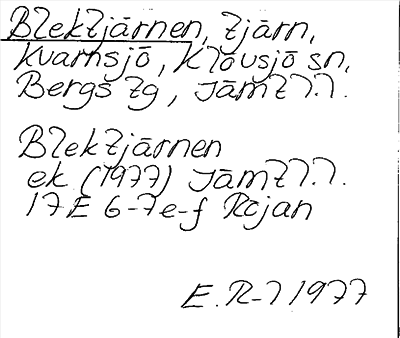 Blektjärnen, tjärn,
Kvarnsjö, Klövsjö sn,
Bergs tg, Jämtl.l.
Blektjärnen
ek (1977) Jämtl.l.
17E 6-7e-f Röjan
E.R-l 1977